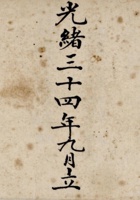 光緒三十四年九月立